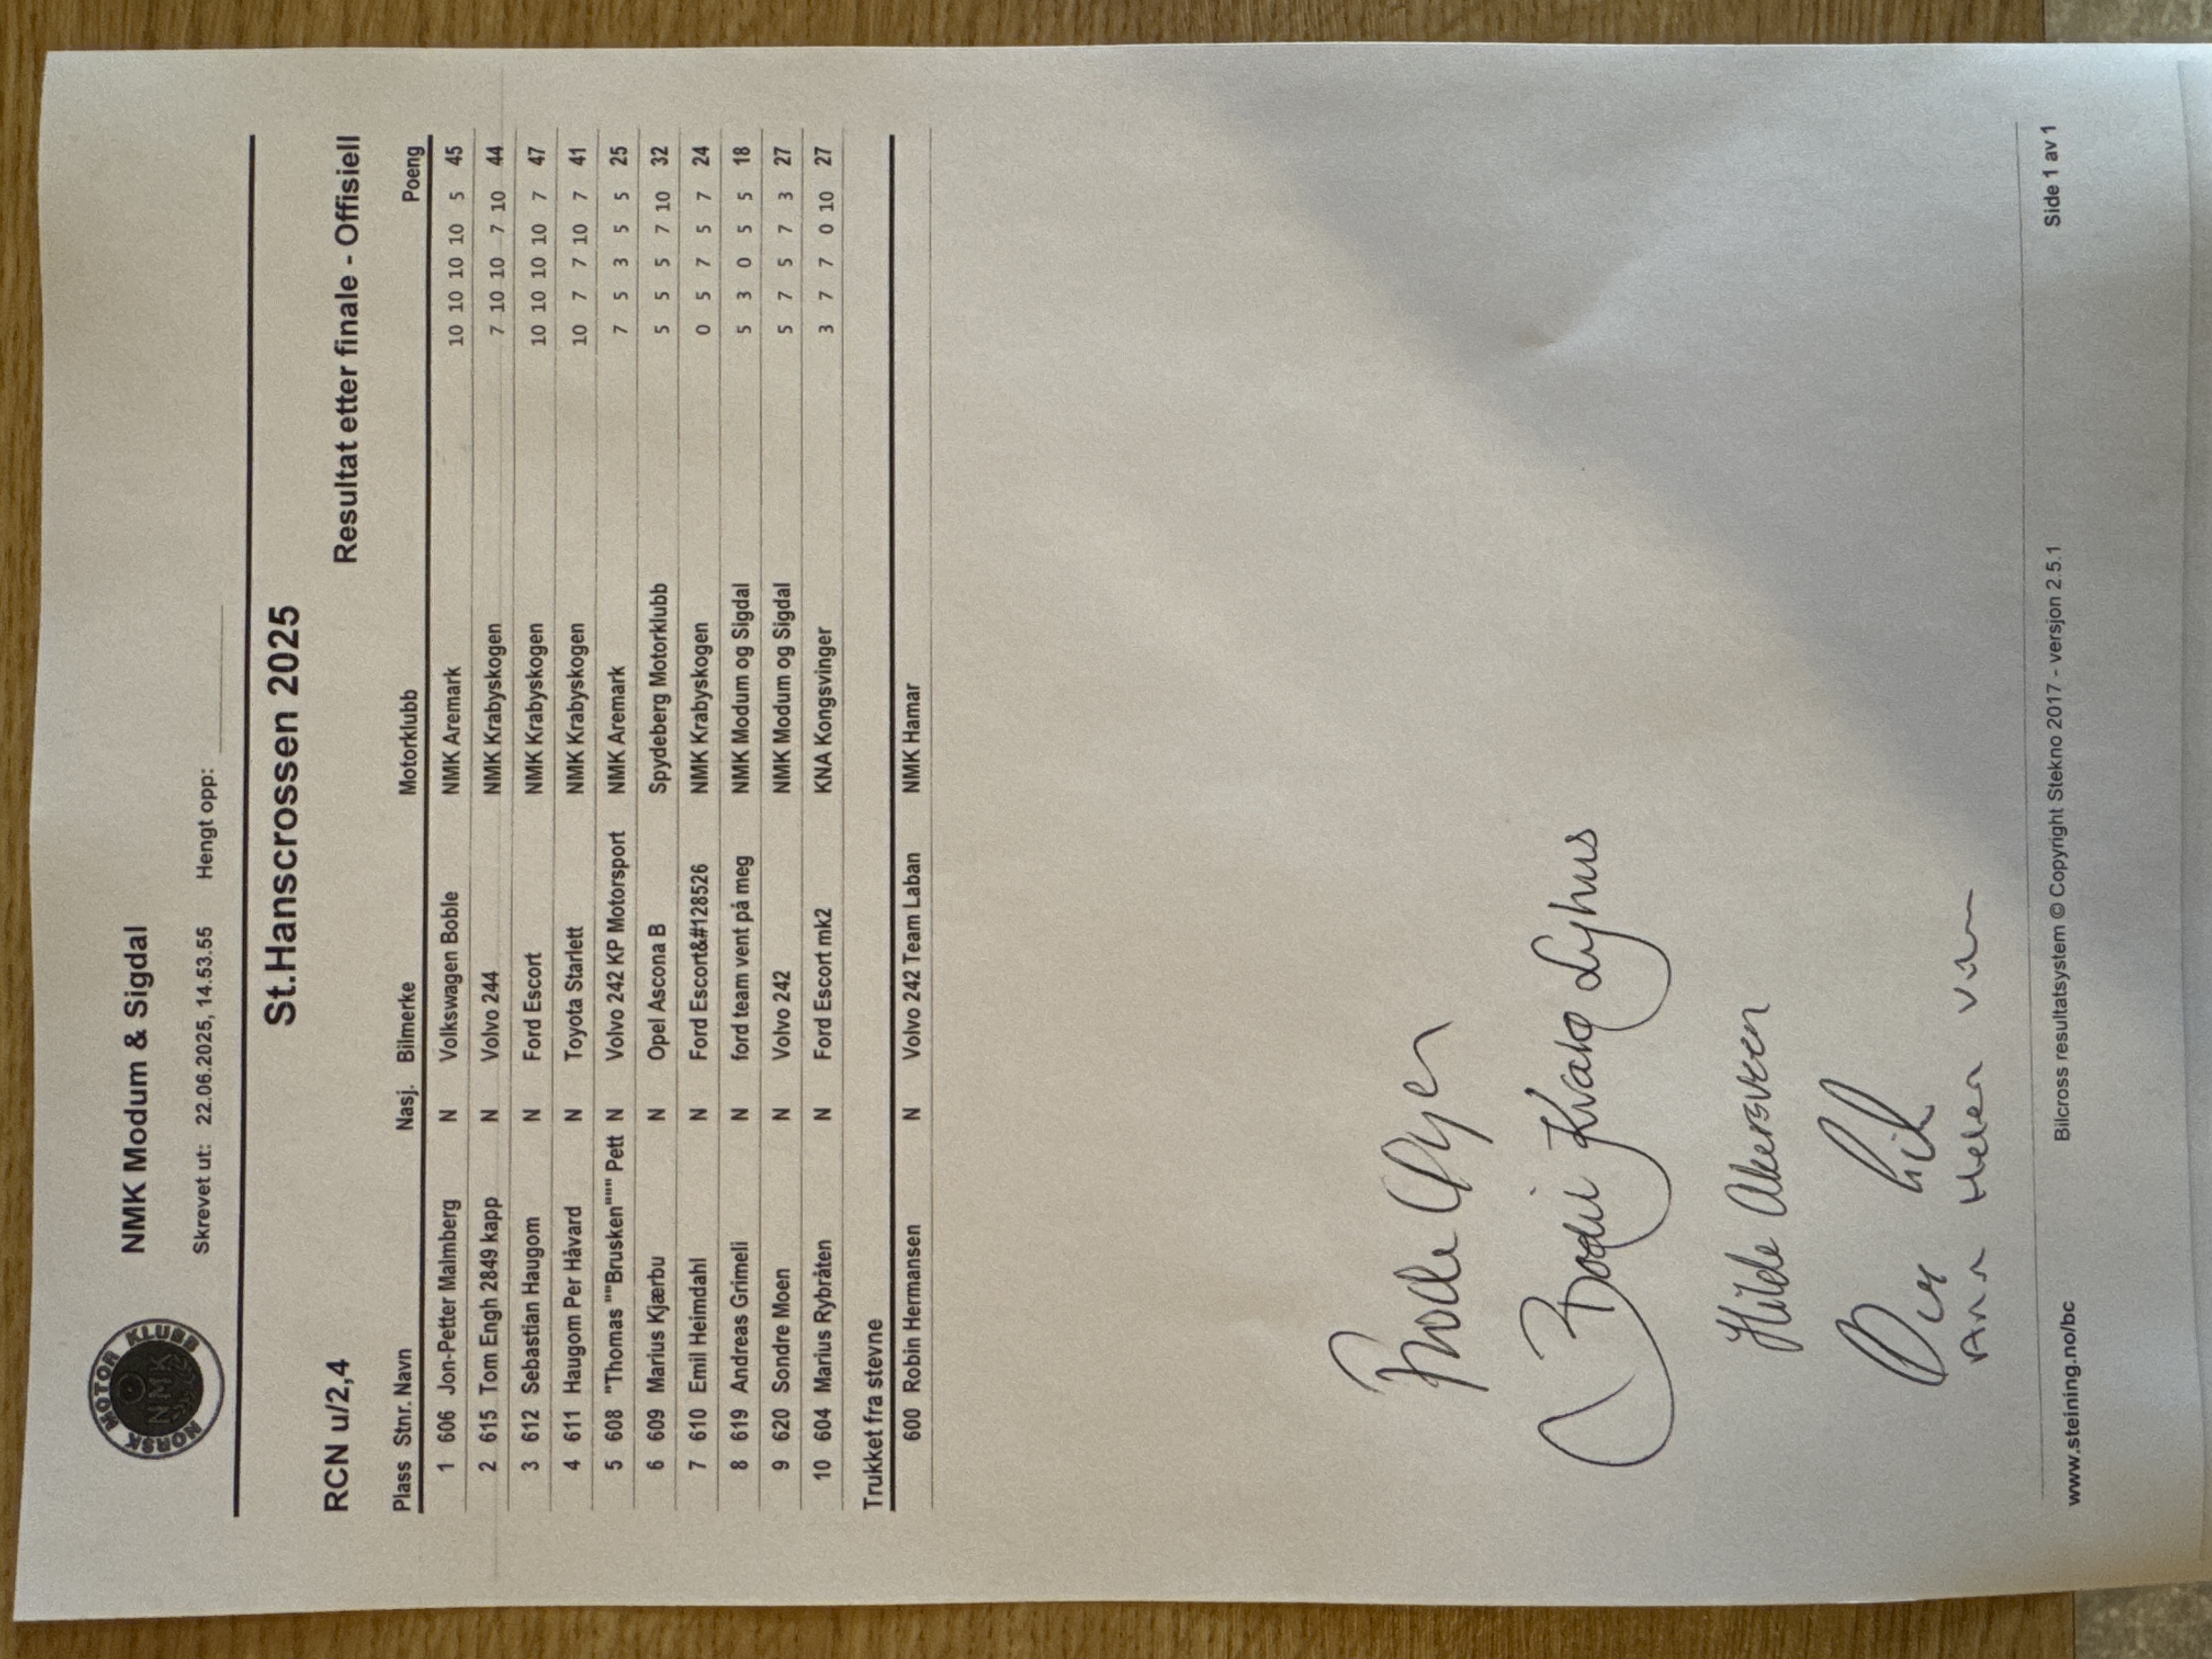 NORSK MOTOR KLUBB
NMK
NMK Modum & Sigdal
Skrevet ut: 22.06.2025, 14.53.55 Hengt opp:
St.Hanscrossen 2025
RCN u/2,4 Resultat etter finale - Offisiell
Plass Stnr. Navn Nasj. Bilmerke Motorklubb Poeng
1 606 Jon-Petter Malmberg N Volkswagen Boble NMK Aremark 10 10 10 10 5 45
2 615 Tom Engh 2849 kapp N Volvo 244 NMK Krabyskogen 7 10 10 7 10 44
3 612 Sebastian Haugom N Ford Escort NMK Krabyskogen 10 10 10 10 7 47
4 611 Haugom Per Håvard N Toyota Starlett NMK Krabyskogen 10 7 7 10 7 41
5 608 "Thomas ""Brusken""" Pett N Volvo 242 KP Motorsport NMK Aremark 7 5 3 5 5 25
6 609 Marius Kjærbu N Opel Ascona B Spydeberg Motorklubb 5 5 5 7 10 32
7 610 Emil Heimdahl N Ford Escort&#128526 NMK Krabyskogen 0 5 7 5 7 24
8 619 Andreas Grimeli N ford team vent på meg NMK Modum og Sigdal 5 3 0 5 5 18
9 620 Sondre Moen N Volvo 242 NMK Modum og Sigdal 5 7 5 7 3 27
10 604 Marius Rybråten N Ford Escort mk2 KNA Kongsvinger 3 7 7 0 10 27
Trukket fra stevne
600 Robin Hermansen N Volvo 242 Team Laban NMK Hamar
Bodil Lyhus
Hilde Akersveen
www.steining.no/bc Bilcross resultatsystem © Copyright Stekno 2017 - versjon 2.5.1 Side 1 av 1